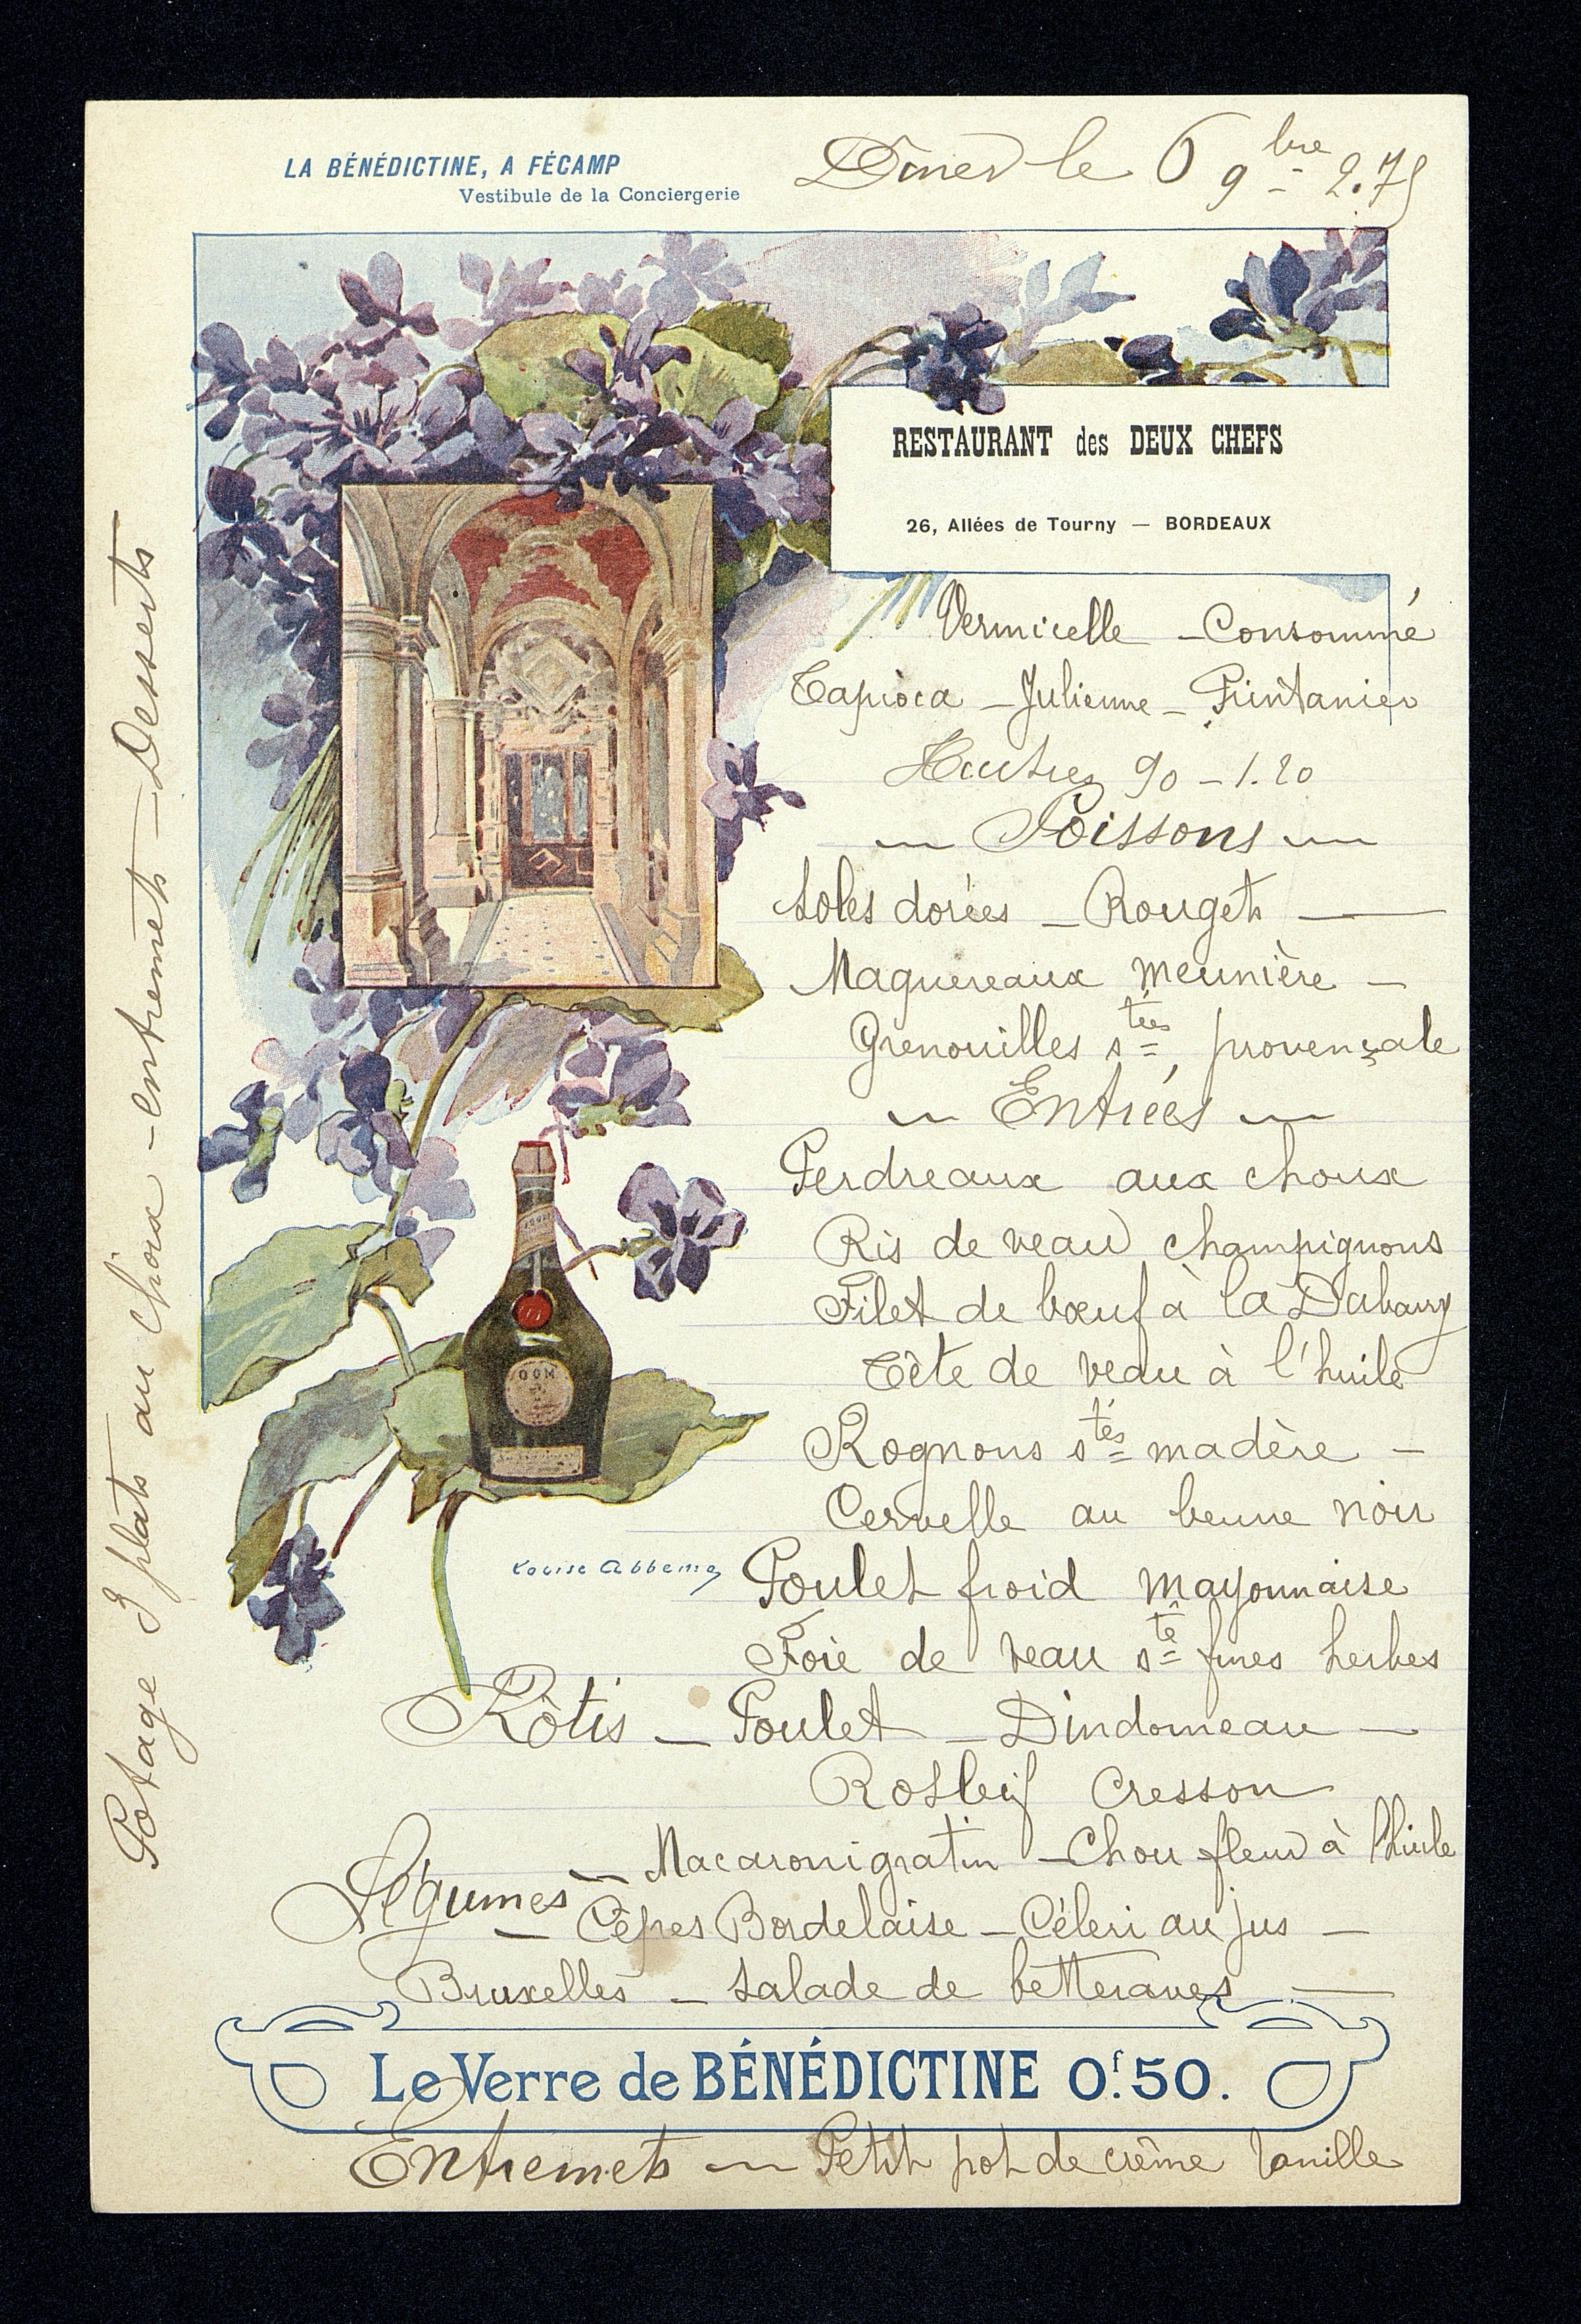 LA BÉNÉDICTINE, A FÉCAMP
Vestibule de la Conciergerie
Dîner le 6 9bre 2.75
RESTAURANT des DEUX CHEFS
26, Allées de Tourny — BORDEAUX
Vermicelle - Consommé
Tapioca - Julienne - Printanier
Huitres 90 - 1.20
Poissons
Soles dorées - Rougets
Maquereaux meunière -
Grenouilles stées provençale
Entrées
Perdreaux aux choux
Ris de veau champignons
Filet de bœuf à la Dubarry
Tête de veau à l'huile
Rognons stés madère -
Cervelle au beurre noir
Poulet froid mayonnaise
Foie de veau sté fines herbes
Rôtis - Poulet - Dindonneau -
Rosbeif Cresson
Légumes - Macaroni gratin - Chou fleur à l'huile
- Cêpes Bordelaise - Céleri au jus -
Bruxelles - Salade de betteraves
Le Verre de BÉNÉDICTINE 0f.50.
Entremets - Petit pot de crème vanille
Potage 3 plats au choix - entremets - Desserts
Louise Abbema
DOM